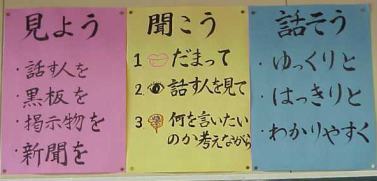 見よう
・話す人を
・黒板を
・掲示物を
・新聞を
聞こう
1 だまって
2. 話す人を見て
3 何を言いたい
のか考えながら
話そう
・ゆっくりと
・はっきりと
・わかりやすく